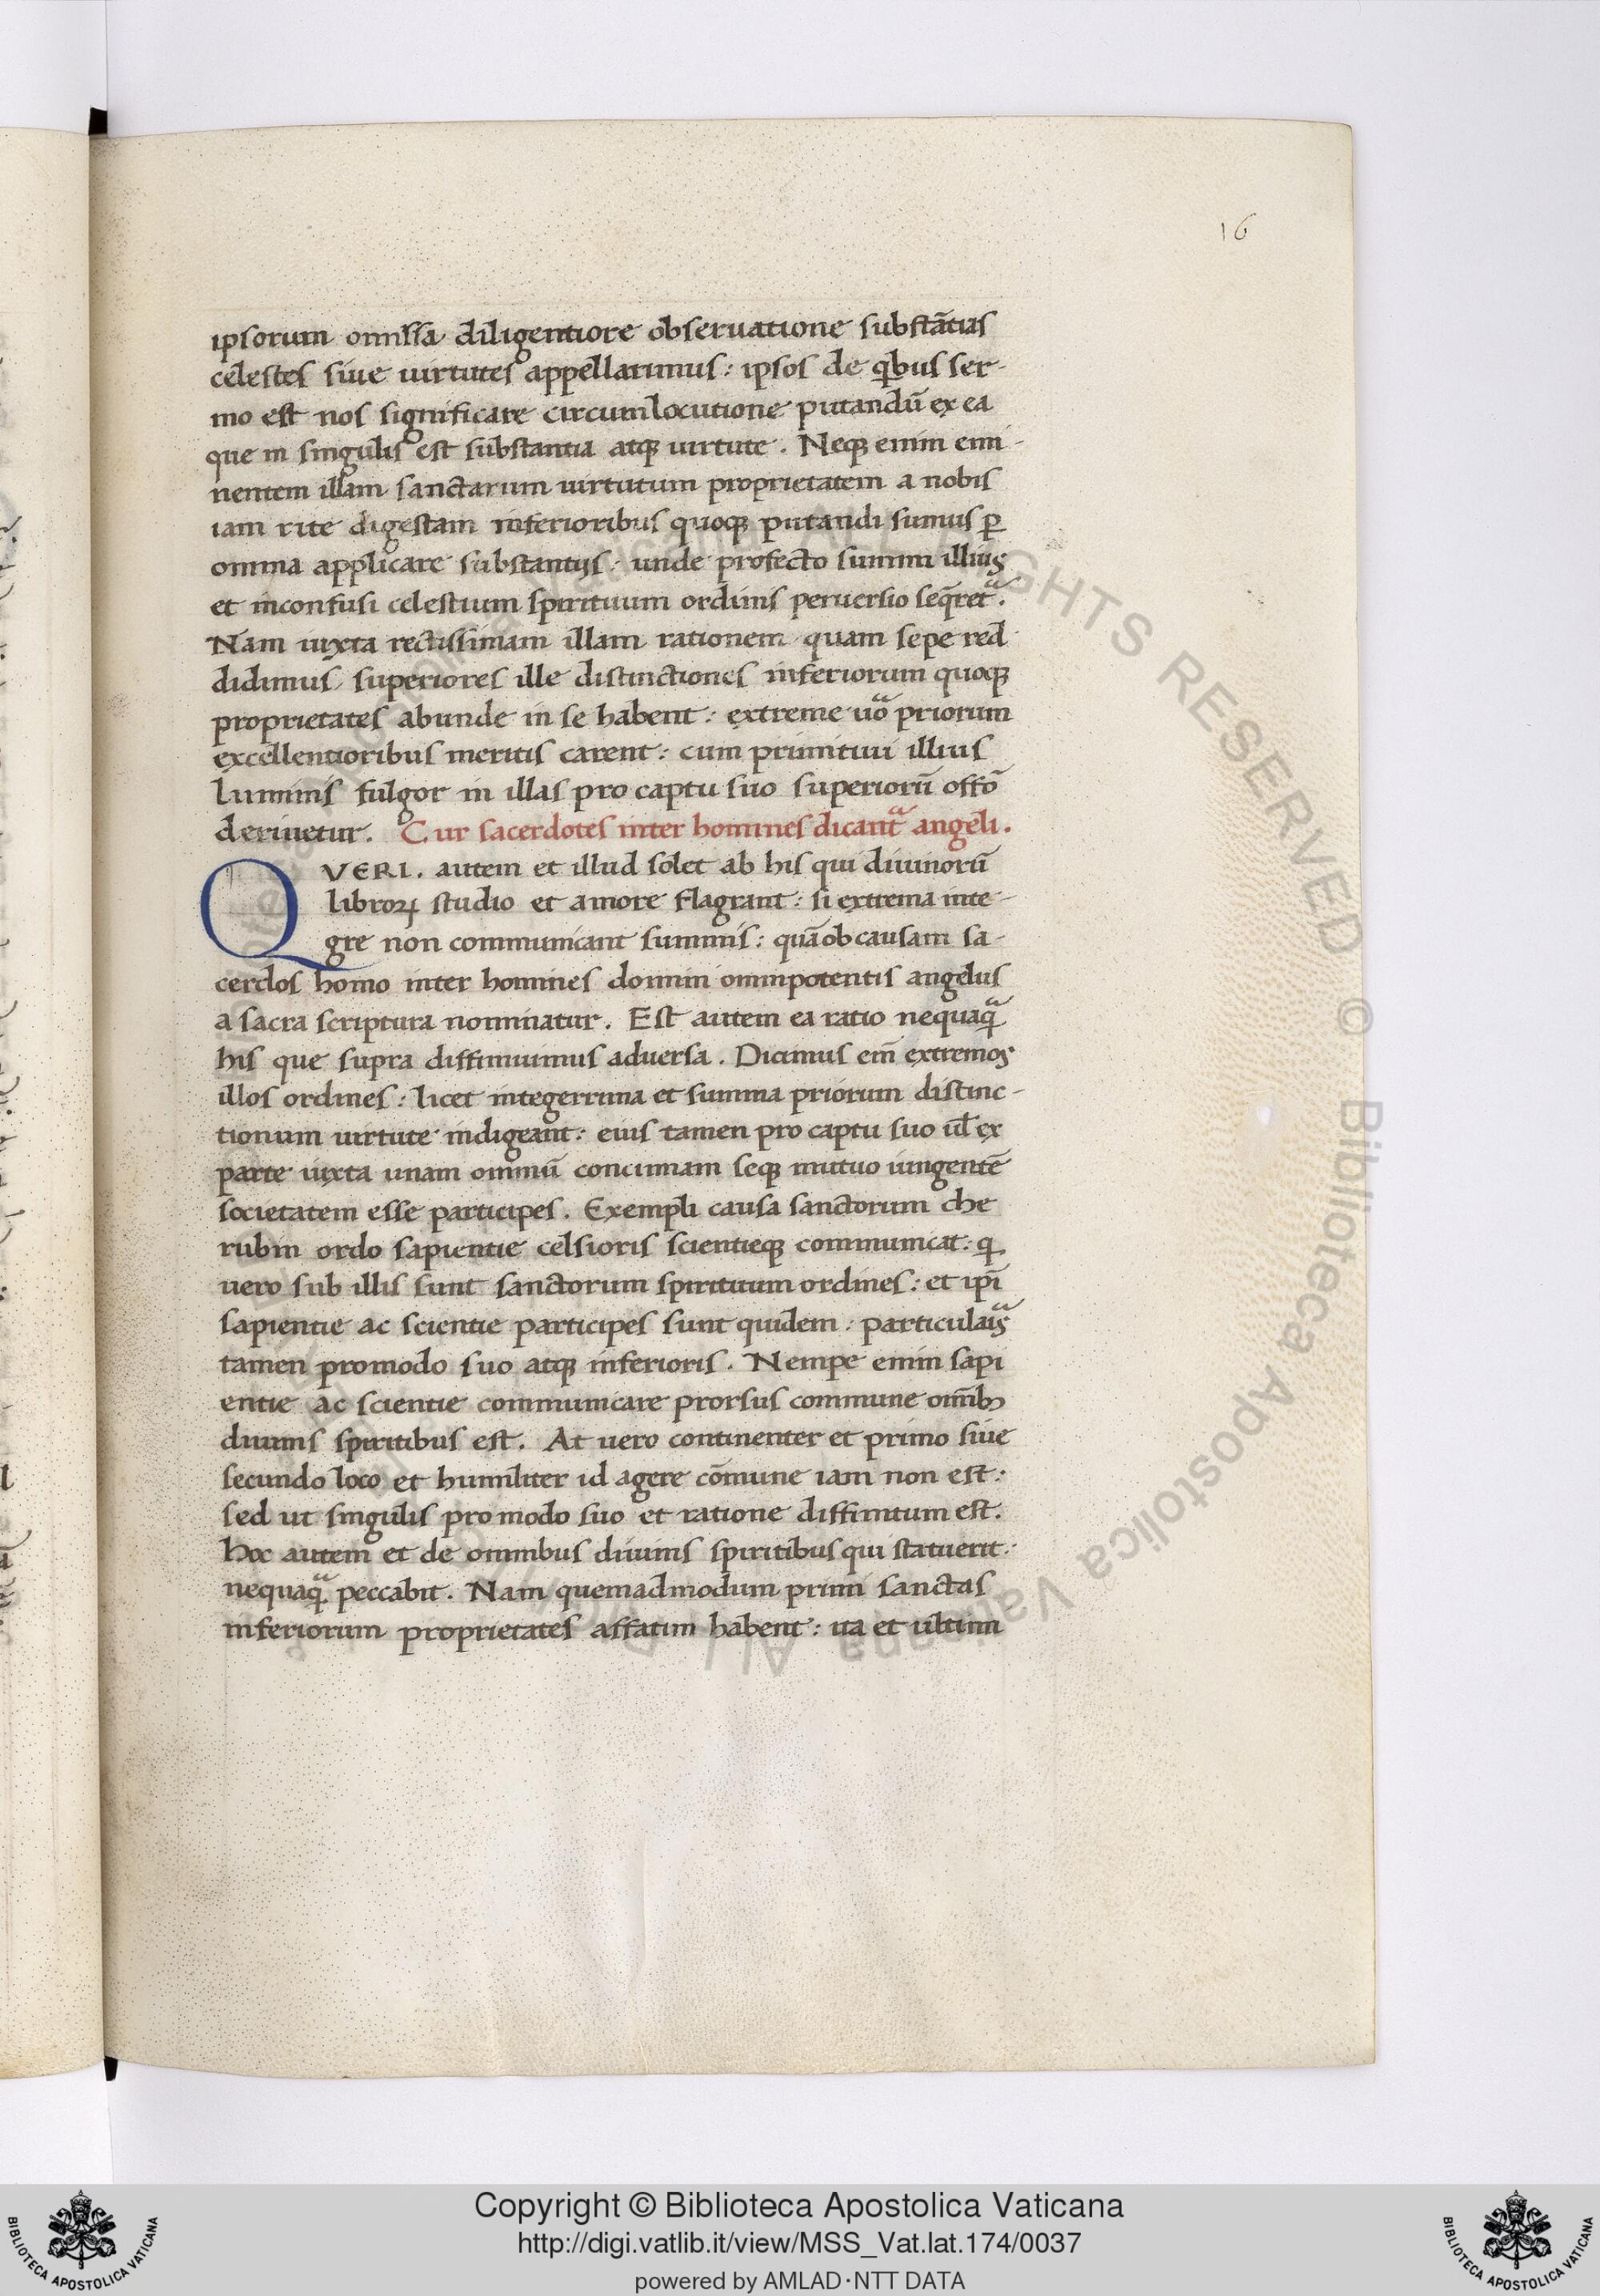 16
ipsorum omissa diligentiore obseruatione substãtias
celestes siue uirtutes appellatimus: ipsos de qbus ser-
mo est nos significare circumlocutione putandũ ex ea
que in singulis est substantia atq; uirtute. Neq; enim emi-
nentem illam sanctarum uirtutum proprietatem a nobis
iam rite digestam inferioribus quoq; putandi sumus ꝑ
omnia applicare substantijs: unde profecto summi illius
et inconfusi celestium spirituum ordinis peruersio seq̃retᷓ.
Nam iuxta rectissimam illam rationem quam sepe red
didimus, superiores ille distinctiones inferiorum quoq;
proprietates abunde in se habent: extreme uoᷓ priorum
excellentioribus meritis carent: cum primitiui illius
luminis fulgor in illas pro captu suo superiorũ offõ
deriuetur. Cur sacerdotes inter homines dicantᷓ angeli.
QVERI. autem et illud solet ab his qui diuinorũ
libroꝝ studio et amore flagrant: si extrema inte-
gre non communicant summis: quãobcausam sa-
cerdos homo inter homines domini omnipotentis angelus
a sacra scriptura nominatur. Est autem ea ratio nequaqᷓ
his que supra diffiniuimus aduersa. Dicimus em̃ extremos
illos ordines: licet integerrima et summa priorum distinc-
tionum uirtute indigeant: eius tamen pro captu suo ul̃ ex
parte iuxta unam omniũ concinnam seq; mutuo iungentẽ
societatem esse participes. Exempli causa sanctorum che
rubin ordo sapientie celsioris scientieq; communicat: q
uero sub illis sunt sanctorum spirituum ordines: et ipĩ
sapientie ac scientie participes sunt quidem: particulaiᷓs
tamen promodo suo atq; inferioris. Nempe enim sapi
entie ac scientie communicare prorsus commune om̃ib;
diuinis spiritibus est. At uero continenter et primo siue
secundo loco et humiliter id agere cõmune iam non est:
sed ut singulis pro modo suo et ratione diffinitum est.
Hoc autem et de omnibus diuinis spiritibus qui statuerit:
nequaqᷓ peccabit. Nam quemadmodum primi sanctas
inferiorum proprietates affatim habent: ita et ultimi
Copyright © Biblioteca Apostolica Vaticana
http://digi.vatlib.it/view/MSS_Vat.lat.174/0037
powered by AMLAD·NTT DATA
BIBLIOTECA APOSTOLICA VATICANA
BIBLIOTECA APOSTOLICA VATICANA